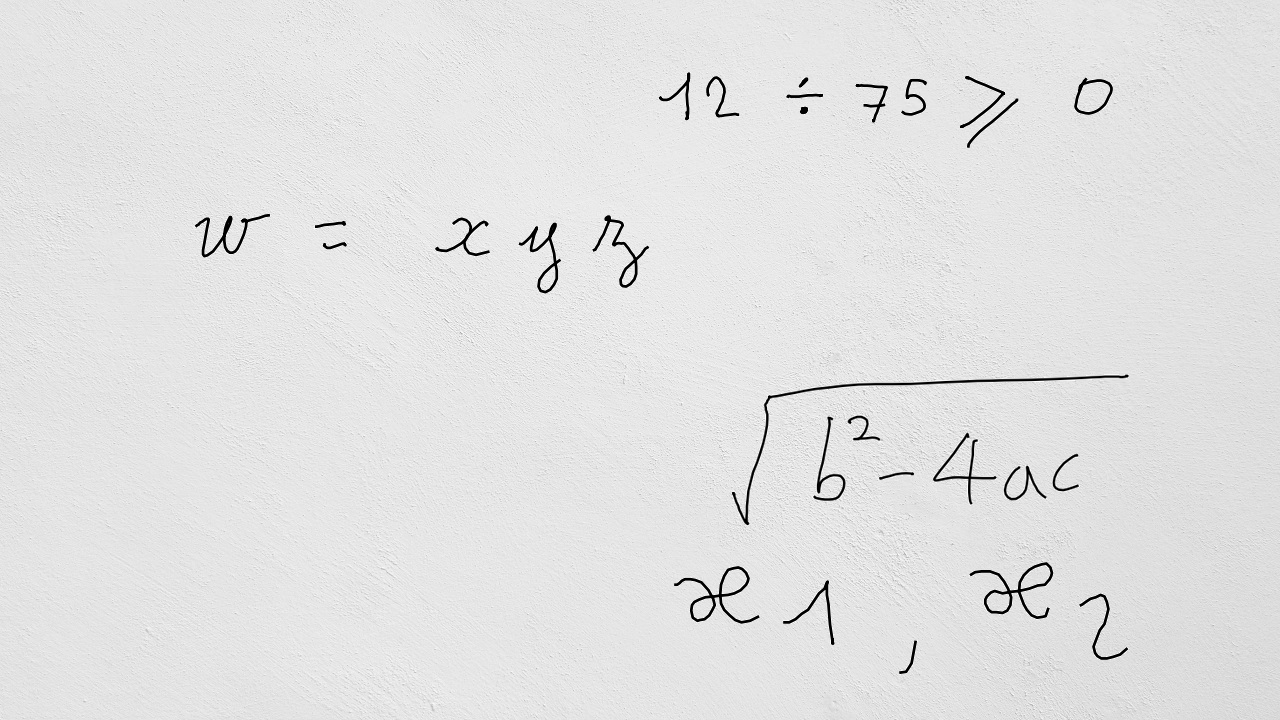 12 ÷ 75 ⩾ 0
w = x y z
√(b² - 4ac)
x₁, x₂